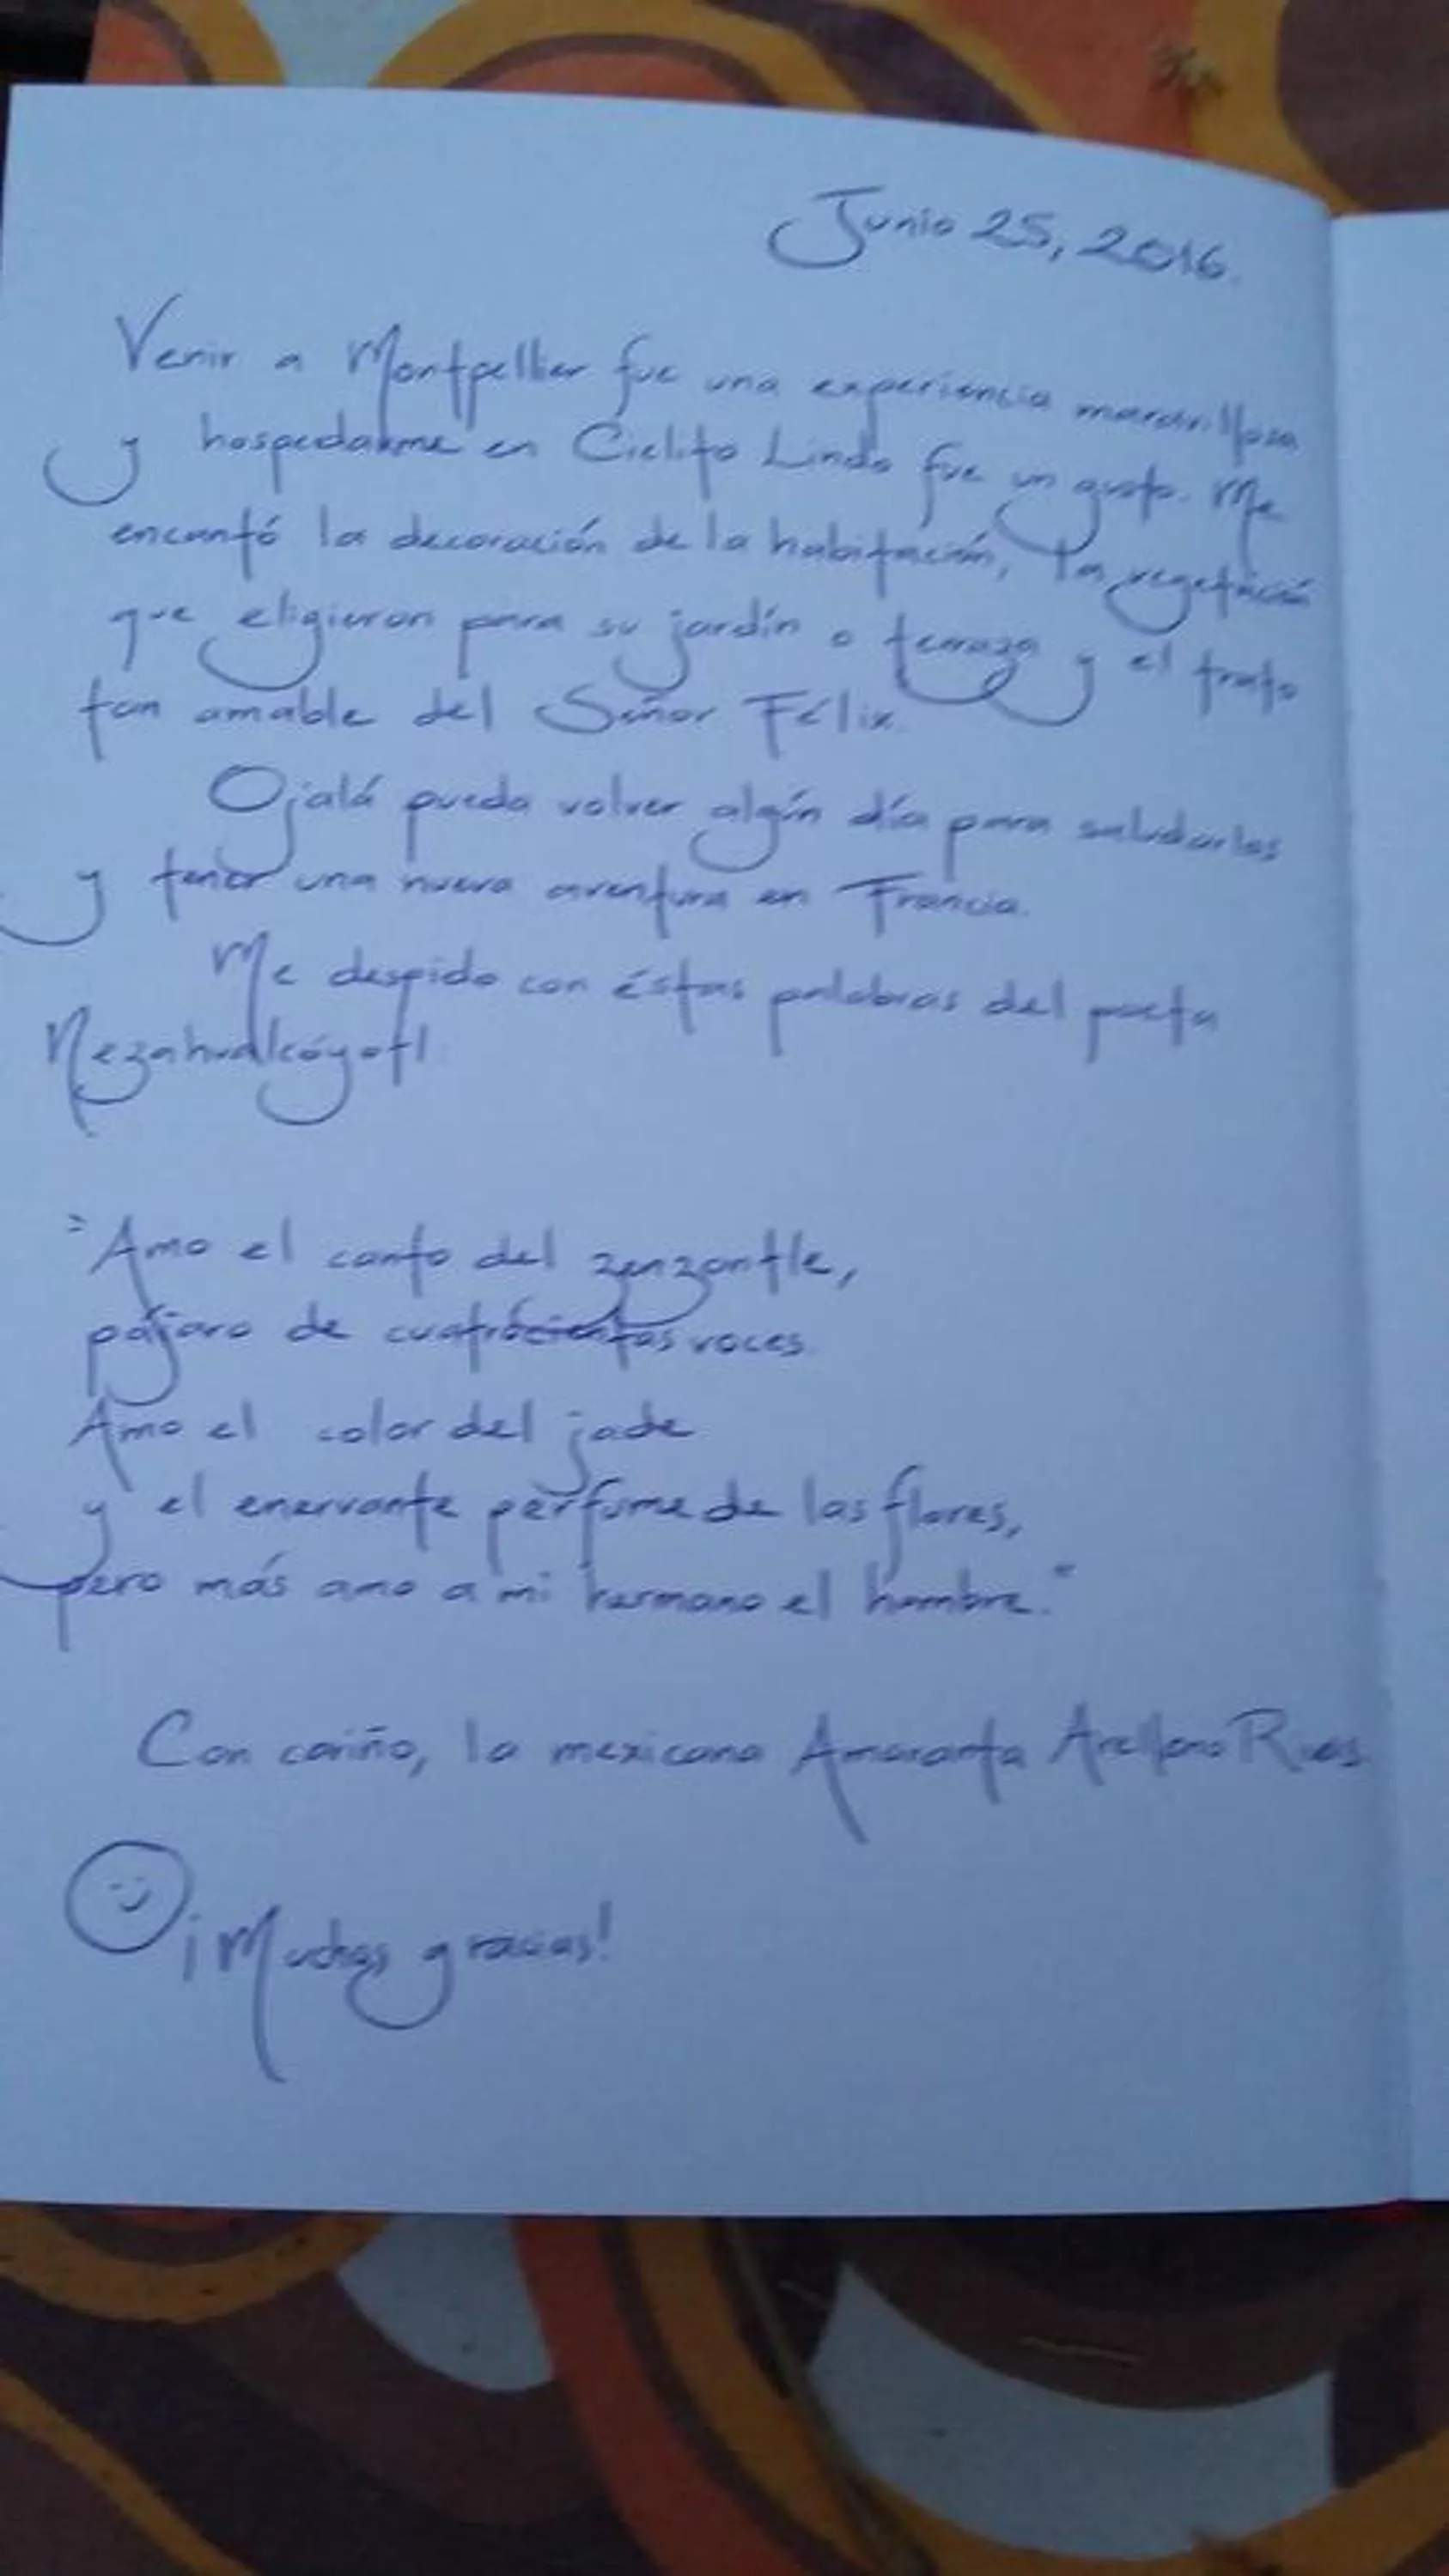 Junio 25, 2016.
Venir a Montpellier fue una experiencia maravillosa
y hospedarme en Cielito Lindo fue un gusto. Me
encantó la decoración de la habitación, la vegetación
que eligieron para su jardín o terraza y el trato
tan amable del Señor Félix.
Ojalá pueda volver algún día para saludarlos
y tener una nueva aventura en Francia.
Me despido con éstas palabras del poeta
Nezahualcóyotl
"Amo el canto del zenzontle,
pájaro de cuatrocientas voces.
Amo el color del jade
y el enervante perfume de las flores,
pero más amo a mi hermano el hombre."
Con cariño, la mexicana Amaranta Arellano
¡Muchas gracias!